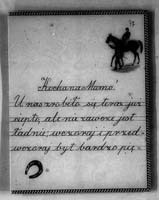 Kochana Mamo!
U nas zrobiło się teraz już
ciepło, ale nie zawsze jest
ładnie, wczoraj i przed-
wczoraj był bardzo pię-